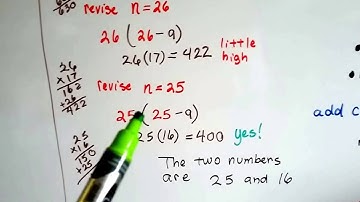 630
revise n=26
26(26-9)
26(17)=422 little
high
26
×17
162
+26
422
revise n=25
25(25-9)
25(16)=400 yes!
25
×16
150
+25
The two numbers
are 25 and 16
add c